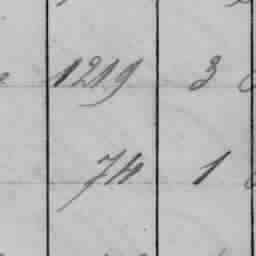 1219 3
74 1